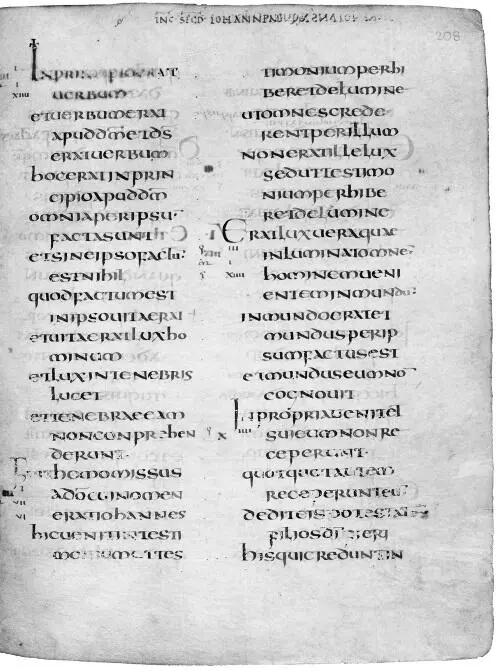 INC SECD IOHANN
208
INPRINCIPIOERAT
UERBUM
ETUERBUMERAT
APUDDM̄ETDS̄
ERATUERBUM
HOCERATINPRIN
CIPIOAPUDDM̄
OMNIAPERIPSU
FACTASUNT
ETSINEIPSOFACTU
ESTNIHIL
QUODFACTUMEST
INIPSOUITAERAT
ETUITAERATLUXHO
MINUM
ETLUXINTENEBRIS
LUCET
ETTENEBRAEEAM
NONCONPREHEN
DERUNT
FUITHOMOMISSUS
ADŌCUINOMEN
ERATIOHANNES
HICUENITINTESTI
MONIUMUTTES
TIMONIUMPERHI
BERETDELUMINE
UTOMNESCREDE
RENTPERILLUM
NONERATILLELUX
SEDUTTESTIMO
NIUMPERHIBE
RETDELUMINE
ERATLUXUERAQUAE
INLUMINATOMNE
HOMINEMUENI
ENTEMINMUNDU
INMUNDOERATET
MUNDUSPERIP
SUMFACTUSEST
ETMUNDUSEUMNO
COGNOUIT
INPROPRIAUENITET
SUIEUMNONRE
CEPERUNT
QUOTQUOTAUTEM
RECEPERUNTEU
DEDITEISPOTESTATE
FILIOSDĪFIERI
HISQUICREDUNTIN